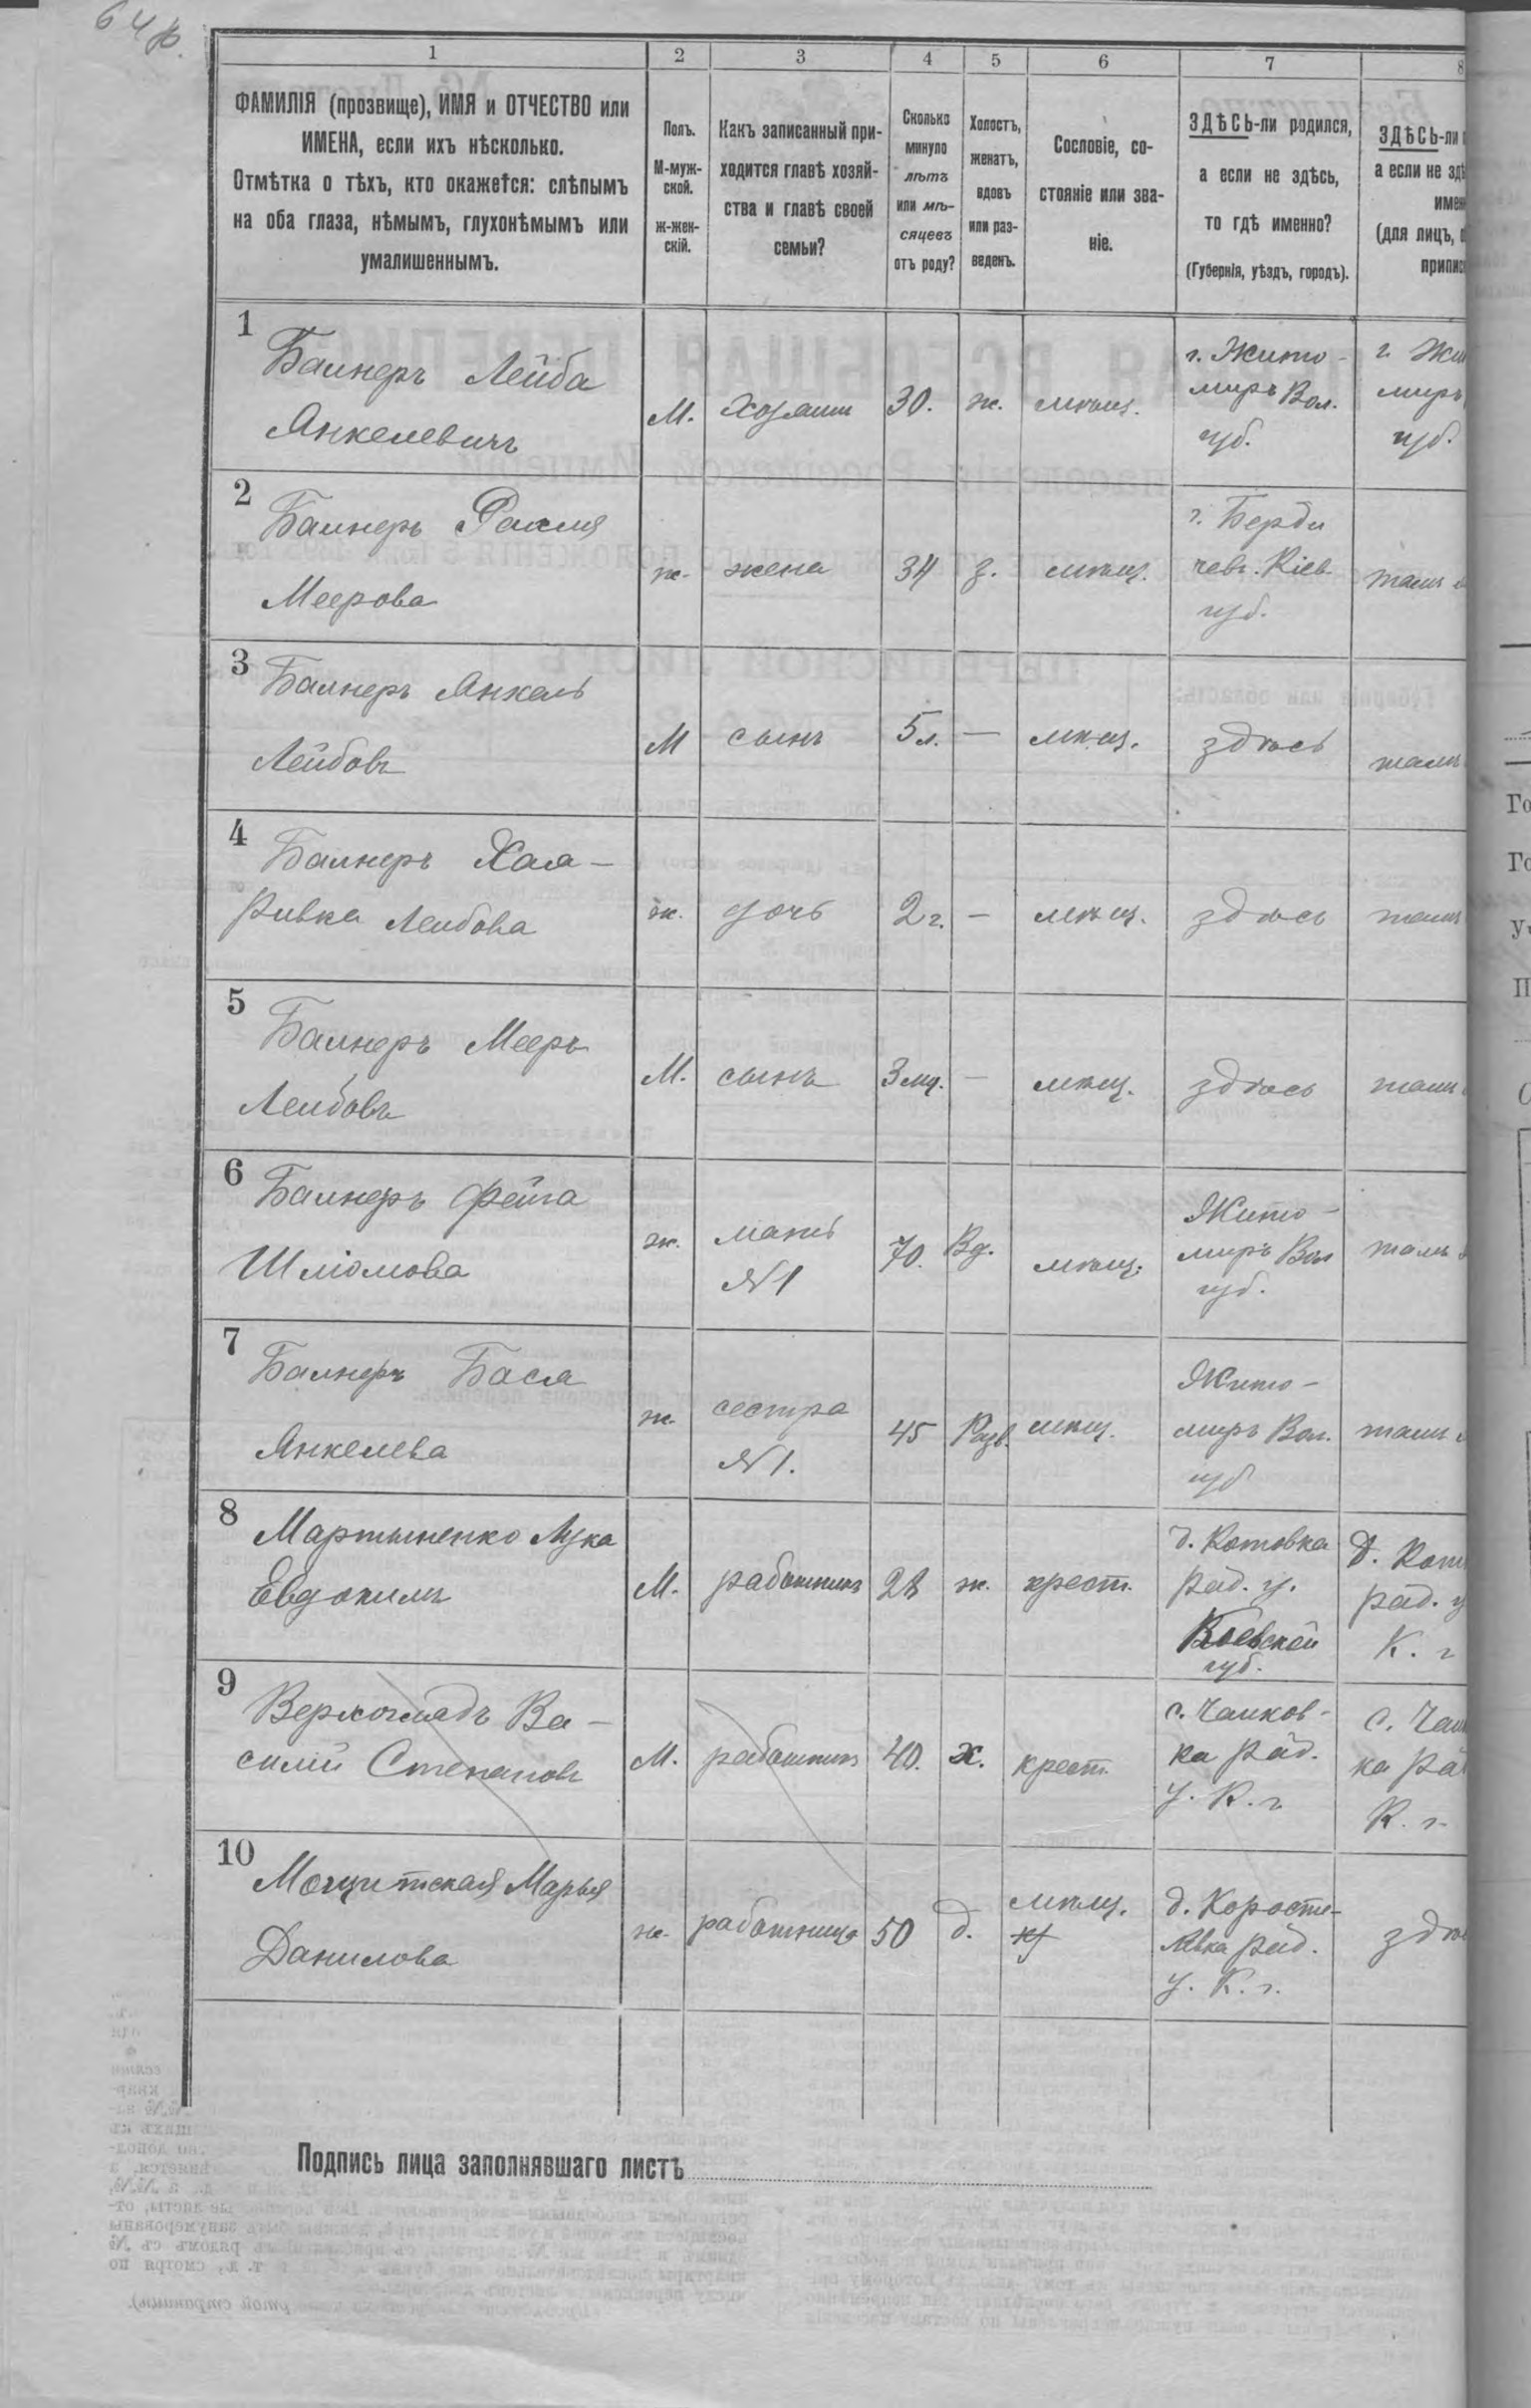 64
1 2 3 4 5 6 7 8
ФАМИЛІЯ (прозвище), ИМЯ и ОТЧЕСТВО или
ИМЕНА, если ихъ нѣсколько.
Отмѣтка о тѣхъ, кто окажется: слѣпымъ
на оба глаза, нѣмымъ, глухонѣмымъ или
умалишеннымъ.
Полъ.
М-муж-
ской.
ж-жен-
скій.
Какъ записанный при-
ходится главѣ хозяй-
ства и главѣ своей
семьи?
Сколько
минуло
лѣтъ
или мѣ-
сяцевъ
отъ роду?
Холостъ,
женатъ,
вдовъ
или раз-
веденъ.
Сословіе, со-
стояніе или зва-
ніе.
ЗДѢСЬ-ли родился,
а если не здѣсь,
то гдѣ именно?
(Губернія, уѣздъ, городъ).
ЗДѢСЬ-ли
а если не здѣ
имен
(для лицъ,
припис
1
Балнеръ Лейба
Янкелевичъ
М.
хозяин
30.
ж.
мѣщ.
г. Жито-
миръ Вол.
губ.
г. Жи
миръ
губ.
2
Балнеръ Рахля
Меерова
ж.
жена
34
з.
мѣщ.
г. Берди
чевъ. Кіев.
губ.
тамъ
3
Балнеръ Янкель
Лейбовъ
М
сынъ
5 л.
—
мѣщ.
здѣсь
тамъ
4
Балнеръ Хая-
Ривка Лейбова
ж.
дочь
2 г.
—
мѣщ.
здѣсь
тамъ
5
Балнеръ Мееръ
Лейбовъ
М.
сынъ
3 мц.
—
мѣщ.
здѣсь
тамъ
6
Балнеръ Фейга
Шліомова
ж.
мать
N1
70.
Вд.
мѣщ.
Жито-
миръ Вол
губ.
тамъ
7
Балнеръ Бася
Янкелева
ж.
сестра
N1.
45
Разв.
мѣщ.
Жито-
миръ Вол.
губ
тамъ
8
Мартыненко Лука
Евдокимъ
М.
работникъ
28
ж.
крест.
д. Котовка
Рад. у.
Кіевской
губ.
д. Кот
рад. у
К. г
9
Верхоглядъ Ва-
силій Степановъ
М.
работникъ
40.
х.
крест.
с. Чайков-
ка Рад.
у. К. г
с. Чай
ка Рад
К. г.
10
Марья
Данилова
ж.
работница
50
д.
мѣщ.
кр
д. Корости-
Рад.
у. К. г.
здѣ
Подпись лица заполнявшаго листъ